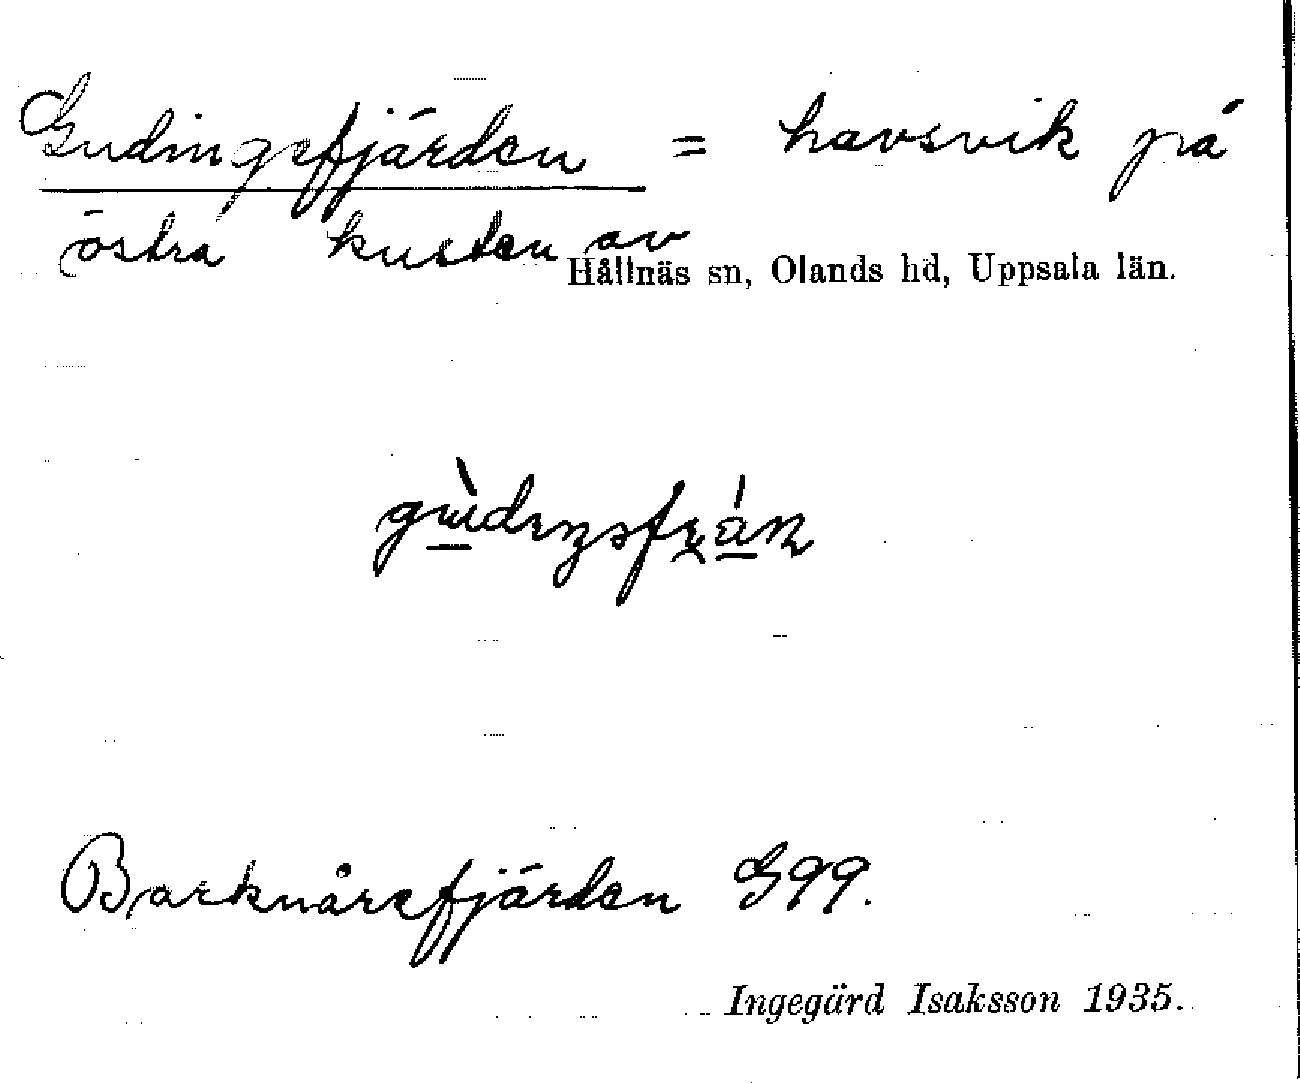 Gudingefjärden = havsvik på
östra kusten av
Hållnäs sn, Olands hd, Uppsala län.
Barknårefjärden G99.
Ingegärd Isaksson 1935.